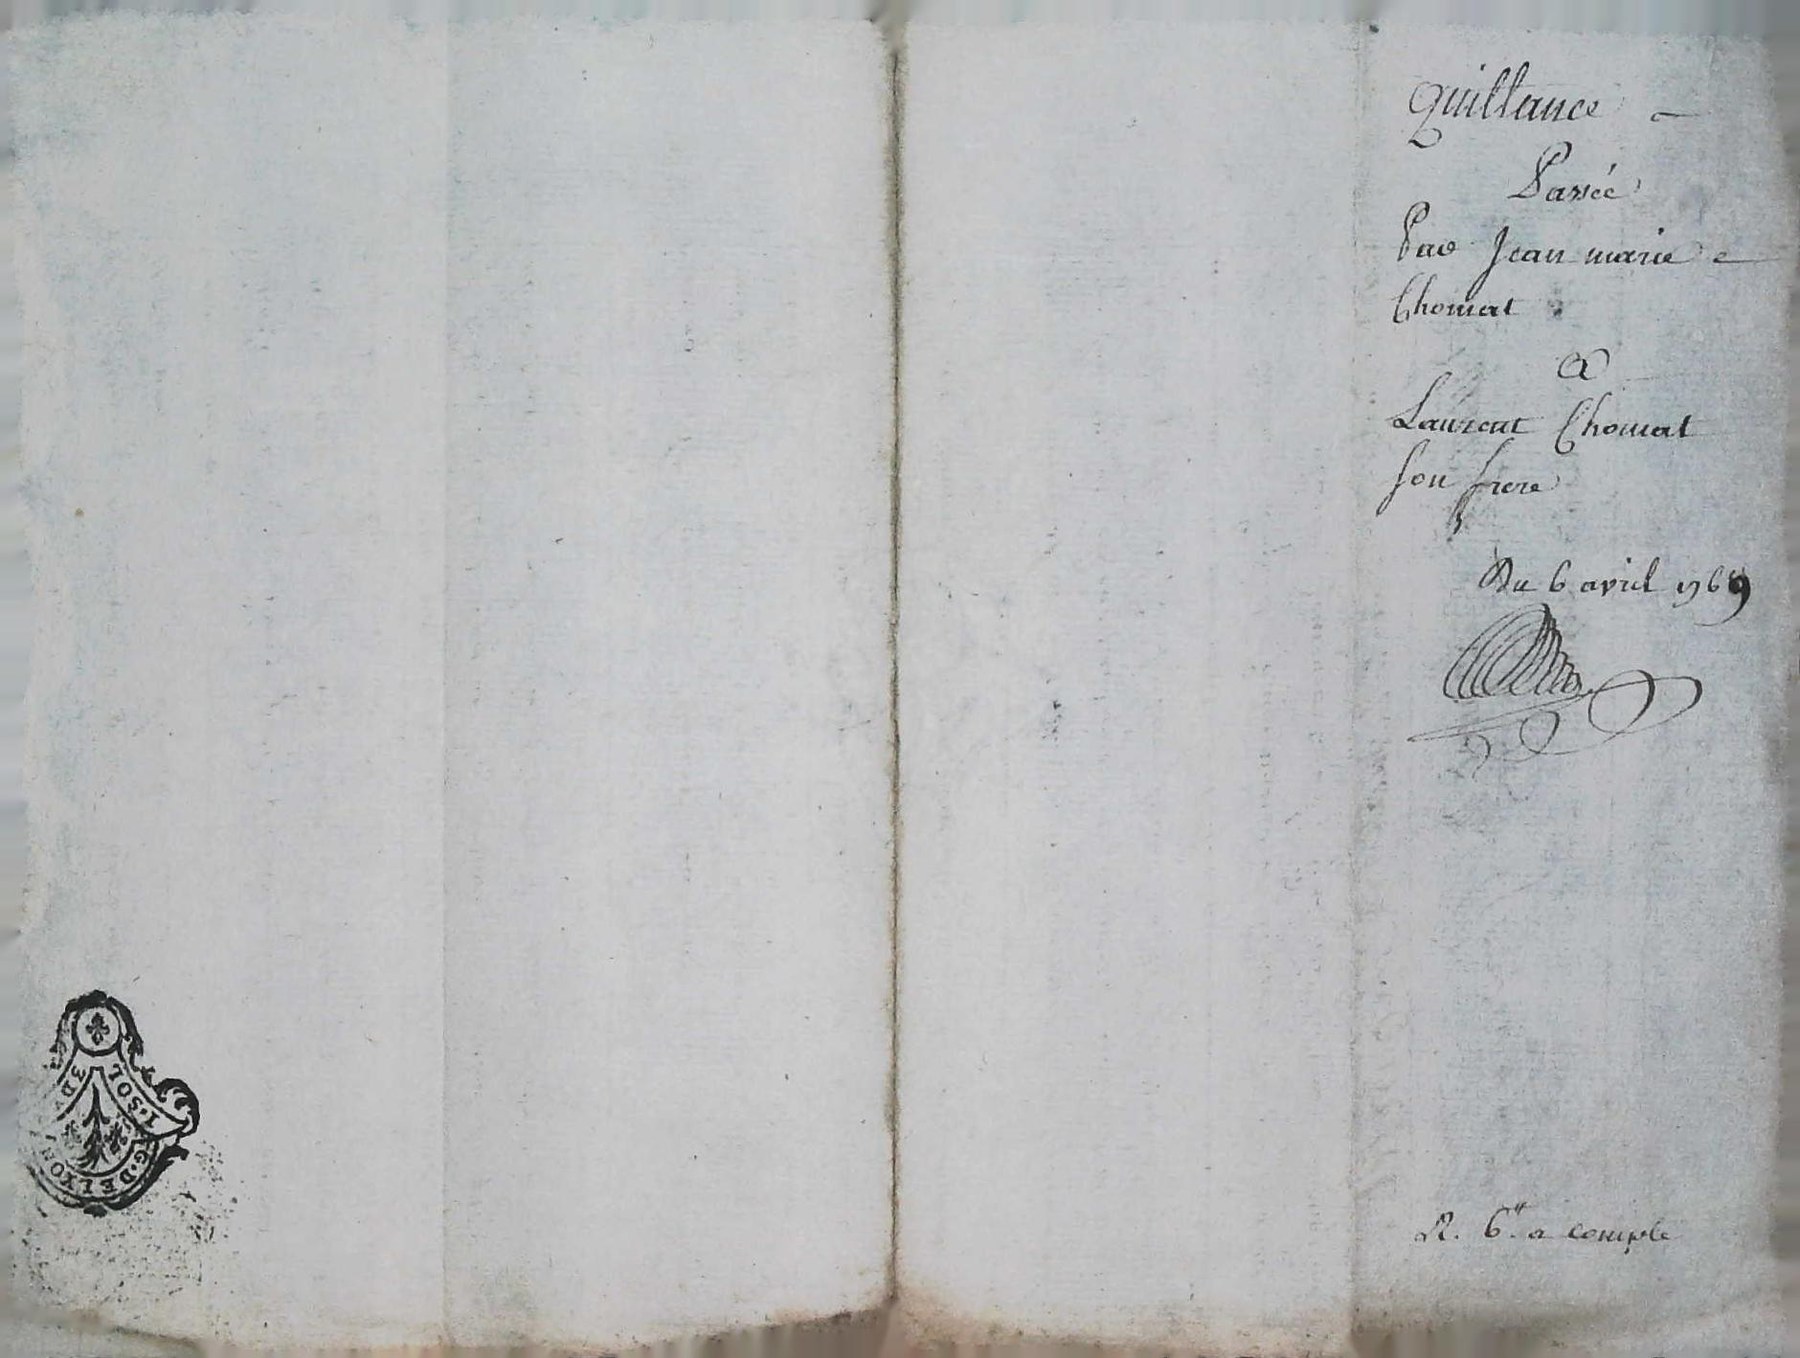 Quittance
Passée
Par Jean marie
Chomat
A
Laurent Chomat
son frere
Du 6 avril 1769
R. 6tt a compte
1·SOL
3 D
G·DE LYON